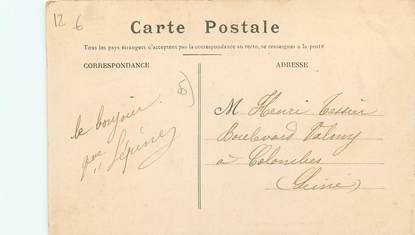 12 6
Carte Postale
Tous les pays étrangers n'acceptent pas la correspondance au verso, se renseigner à la poste
CORRESPONDANCE
ADRESSE
85
le bonjour
Lépine
M Henri Tessier
Boulevard Valmy
à Colombes
(Seine)